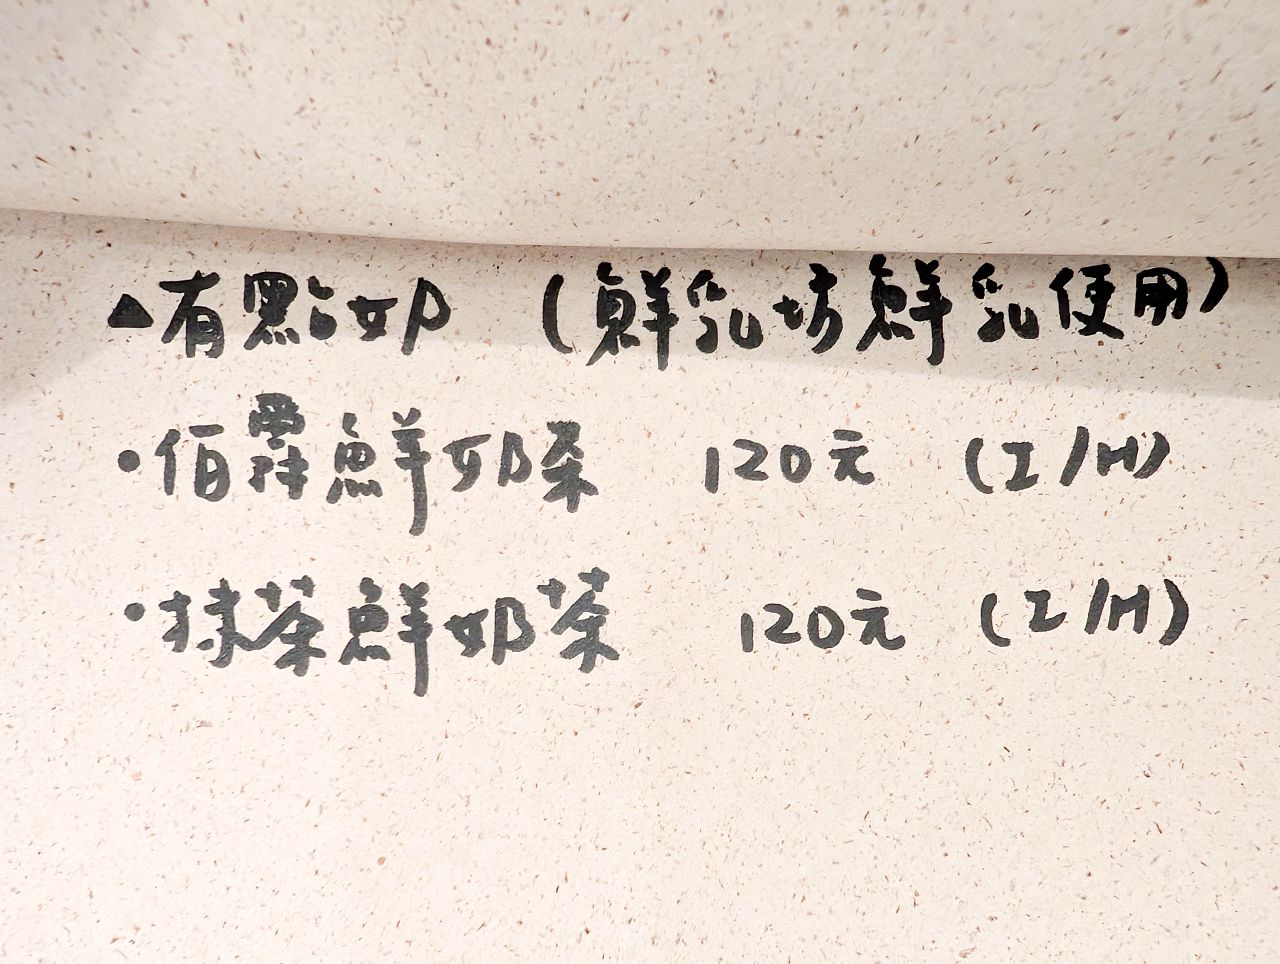 ▲有點奶 (鮮乳坊鮮乳使用)
•伯爵鮮奶茶 120元 (I/H)
•抹茶鮮奶茶 120元 (I/H)